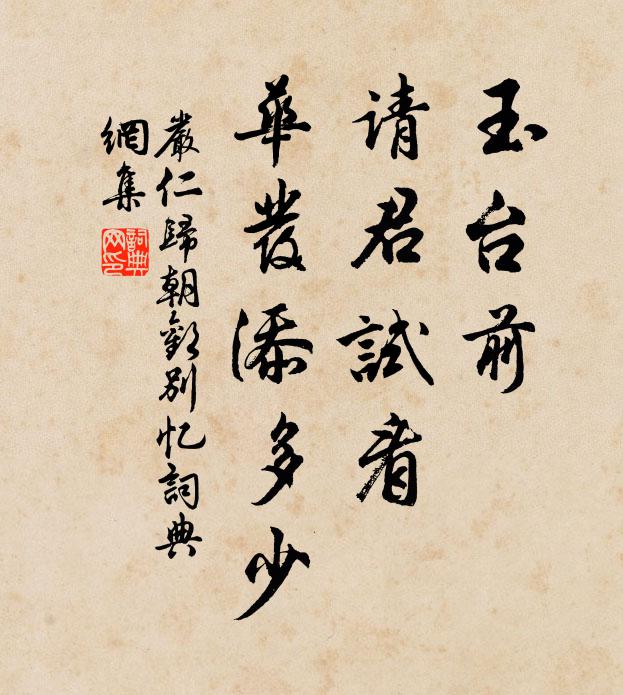 玉台前
请君試看
華發添多少
嚴仁歸朝歡别忆詞典
網集
詞典
网印